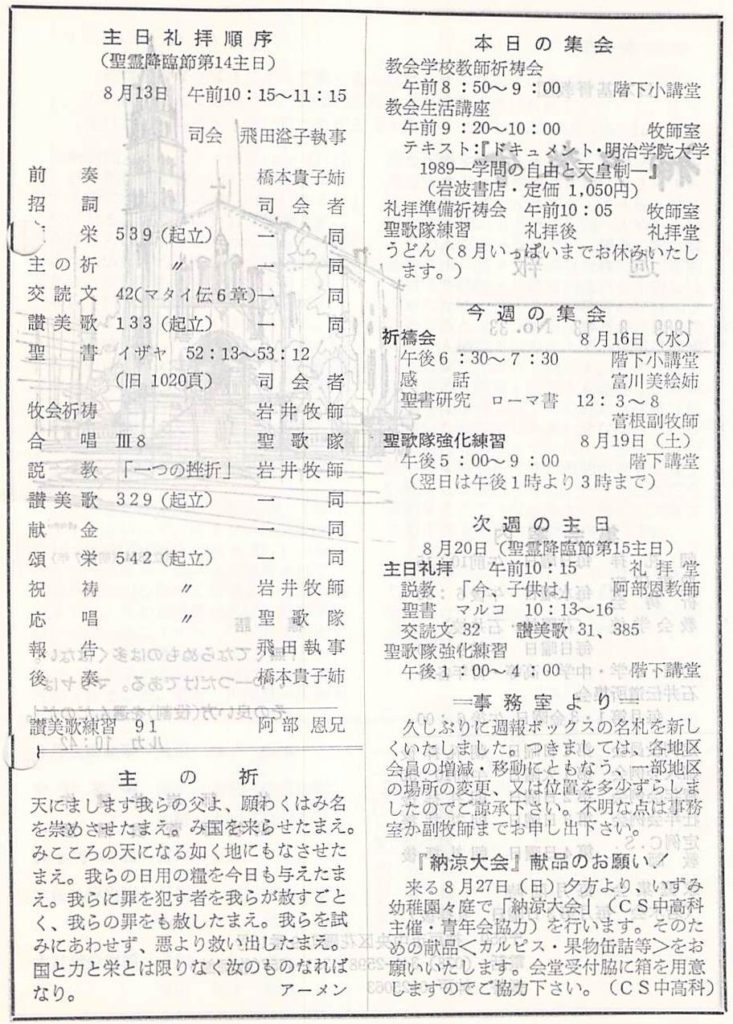 主日礼拝順序
(聖霊降臨節第14主日)
8月13日 午前10：15〜11：15
司会 飛田溢子執事
前奏 橋本貴子姉
招詞 司会者
栄 539(起立) 一同
主の祈 〃 一同
交読文 42(マタイ伝6章) 一同
讃美歌 133(起立) 一同
聖書 イザヤ 52：13〜53：12
(旧 1020頁) 司会者
牧会祈祷 岩井牧師
合唱 Ⅲ8 聖歌隊
説教 「一つの挫折」 岩井牧師
讃美歌 329(起立) 一同
献金 一同
頌栄 542(起立) 一同
祝祷 〃 岩井牧師
応唱 〃 聖歌隊
報告 飛田執事
後奏 橋本貴子姉
讃美歌練習 91 阿部 恩兄
主の祈
天にまします我らの父よ、願わくはみ名
を崇めさせたまえ。み国を来らせたまえ。
みこころの天になる如く地にもなさせた
まえ。我らの日用の糧を今日も与えたま
え。我らに罪を犯す者を我らが赦すごと
く、我らの罪をも赦したまえ。我らを試
みにあわせず、悪より救い出したまえ。
国と力と栄とは限りなく汝のものなれば
なり。 アーメン
本日の集会
教会学校教師祈祷会
午前8：50〜9：00 階下小講堂
教会生活講座
午前9：20〜10：00 牧師室
テキスト：『ドキュメント・明治学院大学
1989―学問の自由と天皇制―』
(岩波書店・定価 1,050円)
礼拝準備祈祷会 午前10：05 牧師室
聖歌隊練習 礼拝後 礼拝堂
うどん(8月いっぱいまでお休みいたし
ます。)
今週の集会
祈禱会 8月16日(水)
午後6：30〜7：30 階下小講堂
感話 富川美絵姉
聖書研究 ローマ書 12：3〜8
菅根副牧師
聖歌隊強化練習 8月19日(土)
午後5：00〜9：00 階下講堂
(翌日は午後1時より3時まで)
次週の主日
8月20日(聖霊降臨節第15主日)
主日礼拝 午前10：15 礼拝堂
説教 「今、子供は」 阿部恩教師
聖書 マルコ 10：13〜16
交読文 32 讃美歌 31、385
聖歌隊強化練習
午後1：00〜4：00 階下講堂
＝事務室より＝
久しぶりに週報ボックスの名札を新し
くいたしました。つきましては、各地区
会員の増減・移動にともなう、一部地区
の場所の変更、又は位置を多少ずらしま
したのでご諒承下さい。不明な点は事務
室か副牧師までお申し出下さい。
『納涼大会』献品のお願い！
来る8月27日(日)夕方より、いずみ
幼稚園々庭で「納涼大会」(CS中高科
主催・青年会協力)を行います。そのた
めの献品<カルピス・果物缶詰等>をお
願いいたします。会堂受付脇に箱を用意
しますのでご協力下さい。(CS中高科)